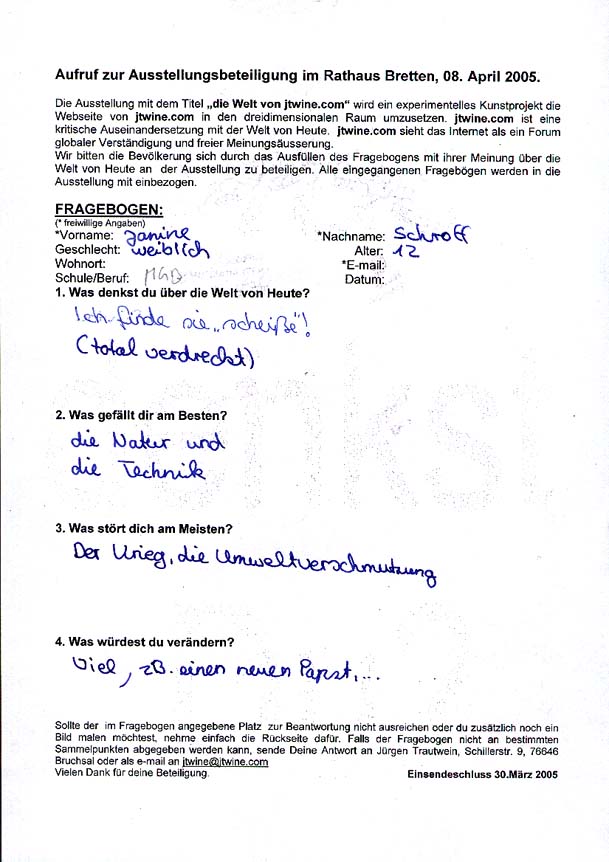 Aufruf zur Ausstellungsbeteiligung im Rathaus Bretten, 08. April 2005.
Die Ausstellung mit dem Titel „die Welt von jtwine.com“ wird ein experimentelles Kunstprojekt die
Webseite von jtwine.com in den dreidimensionalen Raum umzusetzen. jtwine.com ist eine
kritische Auseinandersetzung mit der Welt von Heute. jtwine.com sieht das Internet als ein Forum
globaler Verständigung und freier Meinungsäusserung.
Wir bitten die Bevölkerung sich durch das Ausfüllen des Fragebogens mit ihrer Meinung über die
Welt von Heute an der Ausstellung zu beteiligen. Alle eingegangenen Fragebögen werden in die
Ausstellung mit einbezogen.
FRAGEBOGEN:
(* freiwillige Angaben)
*Vorname: Janine *Nachname: Schroff
Geschlecht: weiblich Alter: 12
Wohnort: *E-mail:
Schule/Beruf: MGB Datum:
1. Was denkst du über die Welt von Heute?
Ich finde sie „scheiße“!
(total verdreckt)
2. Was gefällt dir am Besten?
die Natur und
die Technik
3. Was stört dich am Meisten?
Der Krieg, die Umweltverschmutzung
4. Was würdest du verändern?
Viel, zB. einen neuen Papst,...
Sollte der im Fragebogen angegebene Platz zur Beantwortung nicht ausreichen oder du zusätzlich noch ein
Bild malen möchtest, nehme einfach die Rückseite dafür. Falls der Fragebogen nicht an bestimmten
Sammelpunkten abgegeben werden kann, sende Deine Antwort an Jürgen Trautwein, Schillerstr. 9, 76646
Bruchsal oder als e-mail an jtwine@jtwine.com
Vielen Dank für deine Beteiligung. Einsendeschluss 30.März 2005